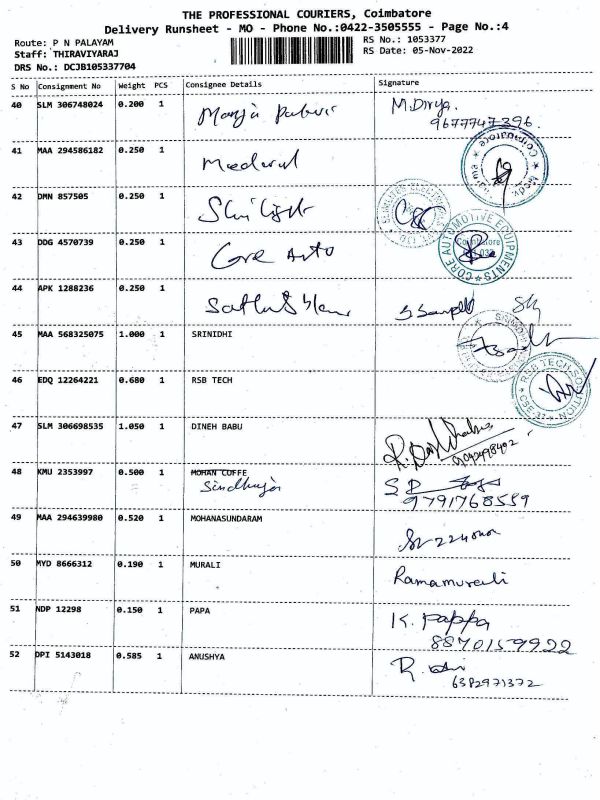 THE PROFESSIONAL COURIERS, Coimbatore
Delivery Runsheet - MO - Phone No.:0422-3505555 - Page No.:4
Route: P N PALAYAM
Staff: THIRAVIYARAJ
DRS No.: DCJB105337704
RS No.: 1053377
RS Date: 05-Nov-2022
S No Consignment No Weight PCS Consignee Details Signature
40 SLM 306748024 0.200 1 M.Divya.
9677747396
41 MAA 294586182 0.250 1
42 DMN 857505 0.250 1
43 DDG 4570739 0.250 1 Core Auto
CORE AUTOMOTIVE EQUIPMENTS
44 APK 1288236 0.250 1
45 MAA 568325075 1.000 1 SRINIDHI
46 EDQ 12264221 0.680 1 RSB TECH
RSB TECH SOLUTION
47 SLM 306698535 1.050 1 DINEH BABU
48 KMU 2353997 0.500 1 MOHAN COFFE
Sindhuja
9791768559
49 MAA 294639980 0.520 1 MOHANASUNDARAM
50 MYD 8666312 0.190 1 MURALI Ramamurali
51 NDP 12298 0.150 1 PAPA K. Pappa
8870159922
52 DPI 5143018 0.585 1 ANUSHYA
6382971372